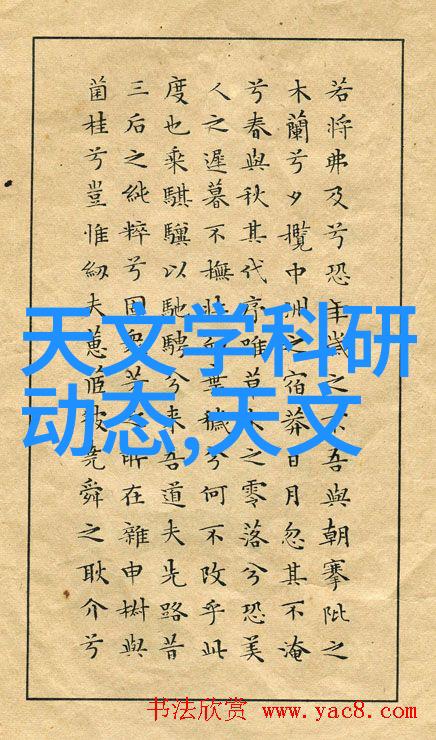 若將弗及兮恐年歲之不吾與朝搴阰之
木蘭兮夕攬中洲之宿莽日月忽其不淹
兮春與秋其代序唯草木之零落兮恐美
人之遲暮不撫壯而棄穢兮何不改乎此
度也乘騏驥以馳騁兮来吾道夫先路昔
三后之純粹兮固衆芳之所在雜申椒與
菌桂兮豈惟紉夫蕙茝彼堯舜之耿介兮
天文学科研
动态,天文
书法欣赏 www.yac8.com